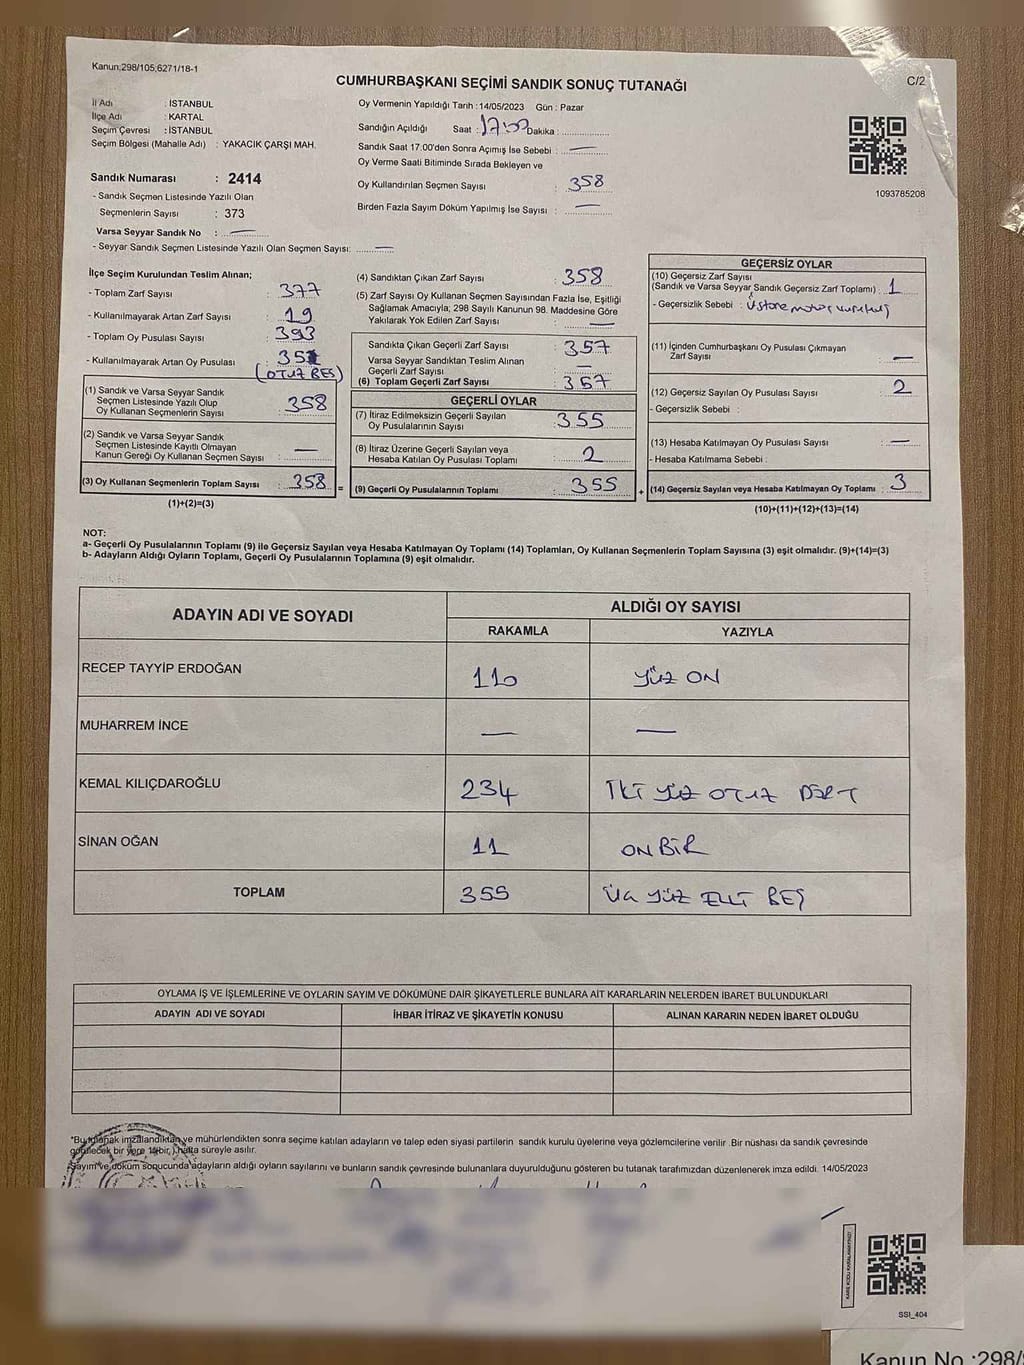 Kanun;298/105,6271/18-1
CUMHURBAŞKANI SEÇİMİ SANDIK SONUÇ TUTANAĞI
C/2
İl Adı : İSTANBUL
İlçe Adı : KARTAL
Seçim Çevresi : İSTANBUL
Seçim Bölgesi (Mahalle Adı) : YAKACIK ÇARŞI MAH.
Sandık Numarası : 2414
- Sandık Seçmen Listesinde Yazılı Olan
Seçmenlerin Sayısı : 373
Varsa Seyyar Sandık No : —
- Seyyar Sandık Seçmen Listesinde Yazılı Olan Seçmen Sayısı: —
Oy Vermenin Yapıldığı Tarih : 14/05/2023 Gün : Pazar
Sandığın Açıldığı Saat : 17:00 Dakika :
Sandık Saat 17:00'den Sonra Açımış İse Sebebi : —
Oy Verme Saati Bitiminde Sırada Bekleyen ve
Oy Kullandırılan Seçmen Sayısı : 358
Birden Fazla Sayım Döküm Yapılmış İse Sayısı : —
1093785208
İlçe Seçim Kurulundan Teslim Alınan;
- Toplam Zarf Sayısı : 377
- Kullanılmayarak Artan Zarf Sayısı : 19
- Toplam Oy Pusulası Sayısı : 393
- Kullanılmayarak Artan Oy Pusulası : 35
(OTUZ BEŞ)
(1) Sandık ve Varsa Seyyar Sandık
Seçmen Listesinde Yazılı Olup
Oy Kullanan Seçmenlerin Sayısı : 358
(2) Sandık ve Varsa Seyyar Sandık
Seçmen Listesinde Kayıtlı Olmayan
Kanun Gereği Oy Kullanan Seçmen Sayısı : —
(3) Oy Kullanan Seçmenlerin Toplam Sayısı : 358 =
(1)+(2)=(3)
(4) Sandıktan Çıkan Zarf Sayısı : 358
(5) Zarf Sayısı Oy Kullanan Seçmen Sayısından Fazla İse, Eşitliği
Sağlamak Amacıyla; 298 Sayılı Kanunun 98. Maddesine Göre
Yakılarak Yok Edilen Zarf Sayısı : —
Sandıkta Çıkan Geçerli Zarf Sayısı : 357
Varsa Seyyar Sandıktan Teslim Alınan
Geçerli Zarf Sayısı : —
(6) Toplam Geçerli Zarf Sayısı : 357
GEÇERLİ OYLAR
(7) İtiraz Edilmeksizin Geçerli Sayılan
Oy Pusulalarının Sayısı : 355
(8) İtiraz Üzerine Geçerli Sayılan veya
Hesaba Katılan Oy Pusulası Toplamı : 2
(9) Geçerli Oy Pusulalarının Toplamı : 355 +
GEÇERSİZ OYLAR
(10) Geçersiz Zarf Sayısı
(Sandık ve Varsa Seyyar Sandık Geçersiz Zarf Toplamı) : 1
- Geçersizlik Sebebi :
(11) İçinden Cumhurbaşkanı Oy Pusulası Çıkmayan
Zarf Sayısı : —
(12) Geçersiz Sayılan Oy Pusulası Sayısı : 2
- Geçersizlik Sebebi :
(13) Hesaba Katılmayan Oy Pusulası Sayısı : —
- Hesaba Katılmama Sebebi :
(14) Geçersiz Sayılan veya Hesaba Katılmayan Oy Toplamı : 3
(10)+(11)+(12)+(13)=(14)
NOT:
a- Geçerli Oy Pusulalarının Toplamı (9) ile Geçersiz Sayılan veya Hesaba Katılmayan Oy Toplamı (14) Toplamları, Oy Kullanan Seçmenlerin Toplam Sayısına (3) eşit olmalıdır. (9)+(14)=(3)
b- Adayların Aldığı Oyların Toplamı, Geçerli Oy Pusulalarının Toplamına (9) eşit olmalıdır.
ADAYIN ADI VE SOYADI
ALDIĞI OY SAYISI
RAKAMLA YAZIYLA
RECEP TAYYİP ERDOĞAN 110 YÜZ ON
MUHARREM İNCE — —
KEMAL KILIÇDAROĞLU 234 İKİ YÜZ OTUZ DÖRT
SİNAN OĞAN 11 ON BİR
TOPLAM 355 ÜÇ YÜZ ELLİ BEŞ
OYLAMA İŞ VE İŞLEMLERİNE VE OYLARIN SAYIM VE DÖKÜMÜNE DAİR ŞİKAYETLERLE BUNLARA AİT KARARLARIN NELERDEN İBARET BULUNDUKLARI
ADAYIN ADI VE SOYADI İHBAR İTİRAZ VE ŞİKAYETİN KONUSU ALINAN KARARIN NEDEN İBARET OLDUĞU
*Bu tutanak imzalandıktan ve mühürlendikten sonra seçime katılan adayların ve talep eden siyasi partilerin sandık kurulu üyelerine veya gözlemcilerine verilir .Bir nüshası da sandık çevresinde
görülecek bir yere 1(bir) hafta süreyle asılır.
Sayım ve döküm sonucunda adayların aldığı oyların sayılarını ve bunların sandık çevresinde bulunanlara duyurulduğunu gösteren bu tutanak tarafımızdan düzenlenerek imza edildi. 14/05/2023
KARE KODU KARALAMAYINIZ!
SSI_404
Kanun No :298/